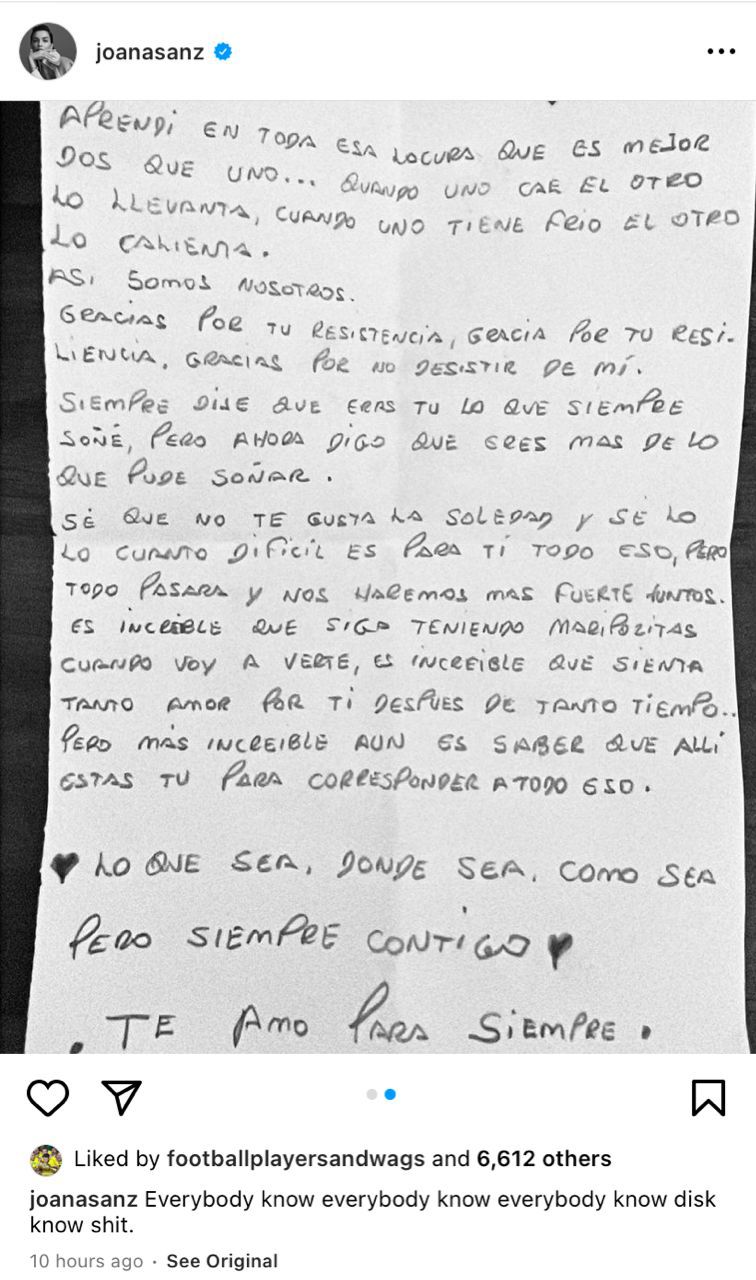 joanasanz
APRENDI EN TODA ESA LOCURA QUE ES MEJOR
DOS QUE UNO... QUANDO UNO CAE EL OTRO
LO LLEVANTA, CUANDO UNO TIENE FRIO EL OTRO
LO CALIENTA.
ASI SOMOS NOSOTROS.
GRACIAS POR TU RESISTENCIA, GRACIA POR TU RESI-
LIENCIA, GRACIAS POR NO DESISTIR DE MÍ.
SIEMPRE DIJE QUE ERAS TU LO QUE SIEMPRE
SOÑÉ, PERO AHORA DIGO QUE ERES MAS DE LO
QUE PUDE SOÑAR.
SÉ QUE NO TE GUSTA LA SOLEDAD Y SÉ LO
LO CUANTO DIFICIL ES PARA TÍ TODO ESO, PERO
TODO PASARA Y NOS HAREMOS MAS FUERTE JUNTOS.
ES INCREÍBLE QUE SIGA TENIENDO MARIPOZITAS
CUANDO VOY A VERTE, ES INCREIBLE QUE SIENTA
TANTO AMOR POR TI DESPUES DE TANTO TIEMPO..
PERO MÁS INCREIBLE AUN ES SABER QUE ALLÍ
ESTAS TU PARA CORRESPONDER A TODO ESO.
♥ LO QUE SEA, DONDE SEA, COMO SEA
PERO SIEMPRE CONTIGO ♥
. TE AMO PARA SIEMPRE.
Liked by footballplayersandwags and 6,612 others
joanasanz Everybody know everybody know everybody know disk
know shit.
10 hours ago · See Original